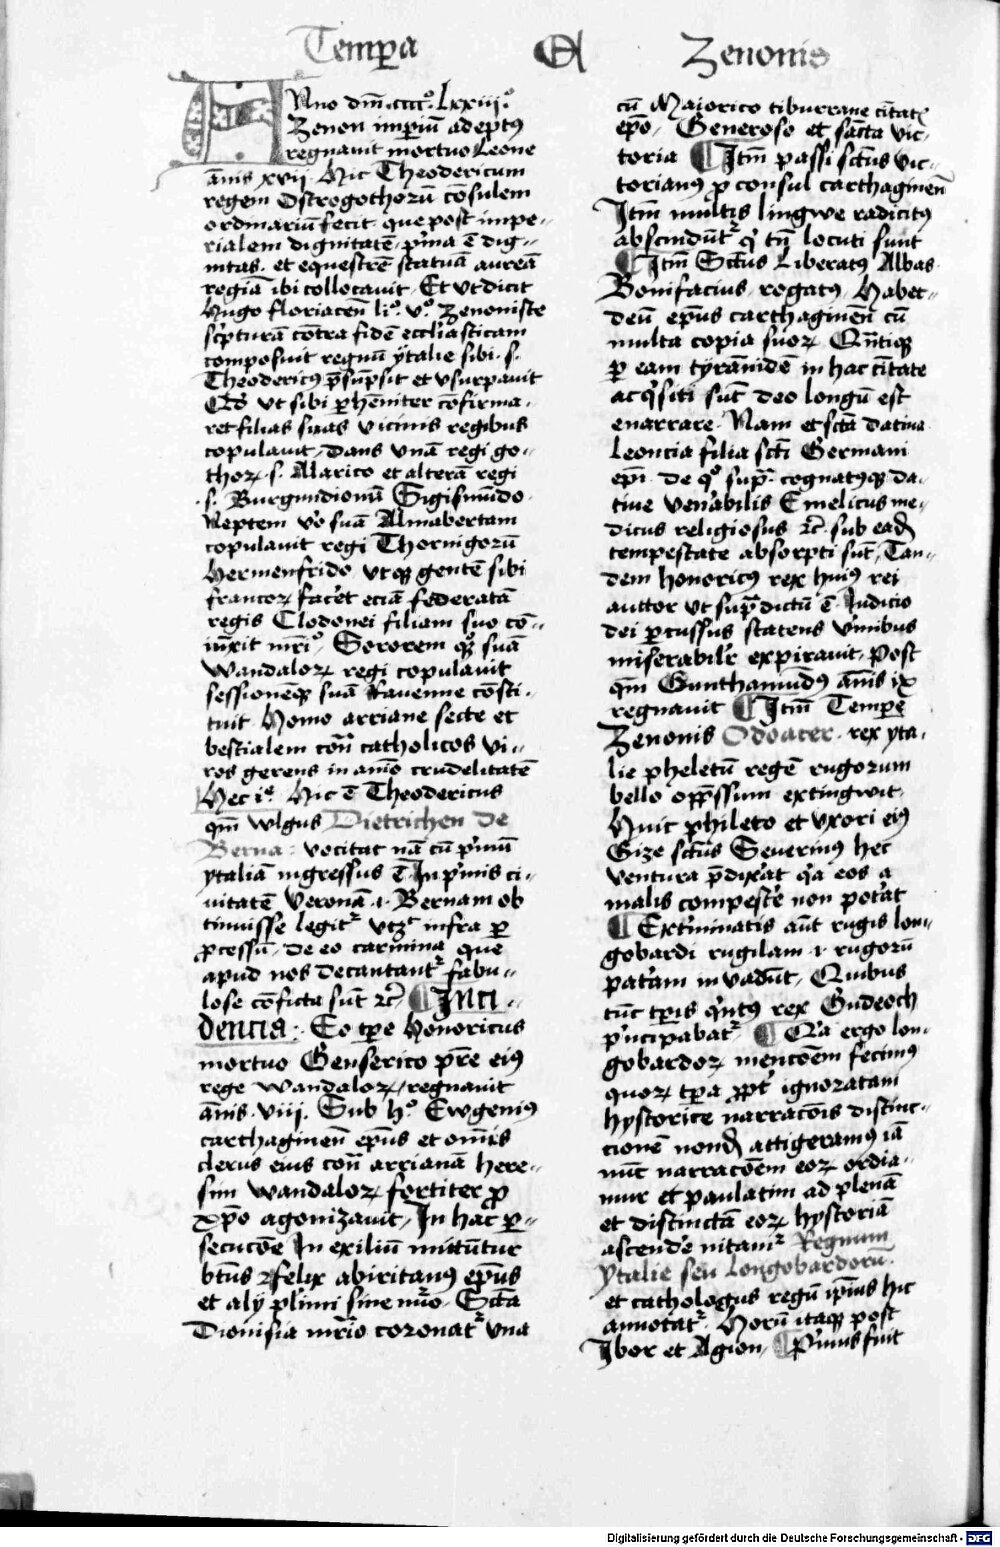 Temp̄a A Zenonis
Anno dn̄i ccccͦ. Lxxiijͦ.
Zenon imp̄iū adeptꝰ
regnauit mortuo Leone
ānis xvij. Hic Theodericum
regem Ostrogothorū cōsulem
ordinariū fecit. que post impe-
rialem dignitatē p̄ma ē dig-
nitas. et equestrē statuā aureā
regiā ibi collocauit. Et ut dicit
Hugo floriacen̄ liͦ. vͦ. Zenon iste
sc̄pturā cōtra fidē eccl̄iasticam
composuit regnū ytalie sibi .s.
Theodericꝰ p̄sūpsit et vsurpauit
Qd̄ vt sibi p̲hēniter cōfirma-
ret filias suas vicinis regibus
copulauit, dans vnā regi go-
thoꝝ .s. Alarico et alterā regi
.s. Burgundionū Sigismūdo.
Neptem v̄o suā Almabertam
copulauit regi Thoringorū
Hermenfrido, vtqꝫ gentē sibi
francoꝝ fac̄et eciā federatā
regis Clodonei filiam suo cō-
iūxit mr̄iͦ. Sororem qꝫ suā
Wandaloꝝ regi copulauit
sessionēqꝫ suā Rauenne cōsti-
tuit Homo arriane secte et
bestialem cōn̄ catholicos vi-
ros gerens in aīmo crudelitatē
Hec iͤ. Hic ē Theodericus
qm̄ wlgus Dietrichen de
Berna. vocitat nā cū p̄mū
ytaliā ingressus ē In p̄mis ci-
uitatē Veronā .i. Bernam ob
tinuisse legitͬ vtꝫ infra p̲
ꝓcessū, de eo carmina que
apud nos decantantͬ fabu-
lose cōficta sūt ⁊c̄ ¶ Inci-
dencia: Eo tp̄re Honoricus
mortuo Genserico pr̄e eiꝰ
rege Wandaloꝝ, regnauit
ānis .viij. Sub hͦ. Ewgeniꝰ
carthaginen̄ ep̄us et om̄is
clerus eius cōn̄ arrianā here-
sim Wandaloꝝ fortiter ꝓ
xp̄o agonizauit, In hac p̲-
secucōe In exiliū mittūtur
bt̄us ⁊ felix abiritanꝰ ep̄us
et alij pl̄imi sine nūͦo. Sc̄ta
Dionisia mr̄io coronatͬ vna
cū Maiorico tiburrane ciītatꝭ
ep̄o. Generoso et sāc̄ta vic-
toria ¶ Itm̄ passi sct̄us vic-
torianꝰ ꝓ consul carthaginen̄
Itm̄ multis lingwe radicitꝰ
abscindūtͬ q̄ tn̄ locuti sunt
¶ Itm̄ Sct̄us Liberatꝰ Abbas.
Bonifacius, rogatꝰ, Habet-
deū ep̄us carthaginen̄ cū
multa copia suoꝝ Qn̄tiqꝫ
p̲ eam tyrānidē in hac ciītate
acq̄siti sūt deo longū est
enarrare. Nam et sct̄a datiua
Leoncia filia sct̄i Germani
ep̄i. de qͦ sup̄. cognatꝰqꝫ da-
tiue ven̄abilis Emelicus me-
dicus religiosus ⁊c̄ sub eadē
tempestate absorpti sūt, Tan-
dem honoricꝰ rex huiꝰ rei
auctor vt sup̄dictū ē Iudicio
dei p̲cussus statens v̄mibus
miserabilīr expirauit, Post
qm̄ Gunthamūdꝰ ānis ix
regnauit ¶ Itm̄ Tempē
Zenonis Odoacer. rex yta-
lie pheletū regē rugorum
bello opp̄ssum extingwit.
Huic phileto et vxori eiꝰ
Gize sct̄us Seuerinꝰ hec
ventura p̄dix̄at q̄a eos a
malis compesc̄e non pot̄at
¶ Ext̄minatis aūt rugis lon-
gobardi rugilam .i. rugorū
patriam inuadūt, Quibus
tūc tp̄ris q̄ntꝰ rex Gudeoch
p̄ncipabatͬ ¶ Q̄a ergo lon-
gobardoꝝ mencōem fecimꝰ
quoꝝ tp̄a ꝓpt̄ ignoratam
hystorice narracōis distinc-
cionē nondū attigeramꝰ iā
nūc narracōem eoꝝ ordia-
mur et paulatim ad plenā
et distinctā eoꝝ hystoriā
ascende nitamͬ Regnum
ytalie seu Longobardorū.
et cathologus regū ip̄ius hic
annotatͬ. Horū itaqꝫ post
Ibor et Agion, ¶ P̄mus fuit
Digitalisierung gefördert durch die Deutsche Forschungsgemeinschaft - DFG